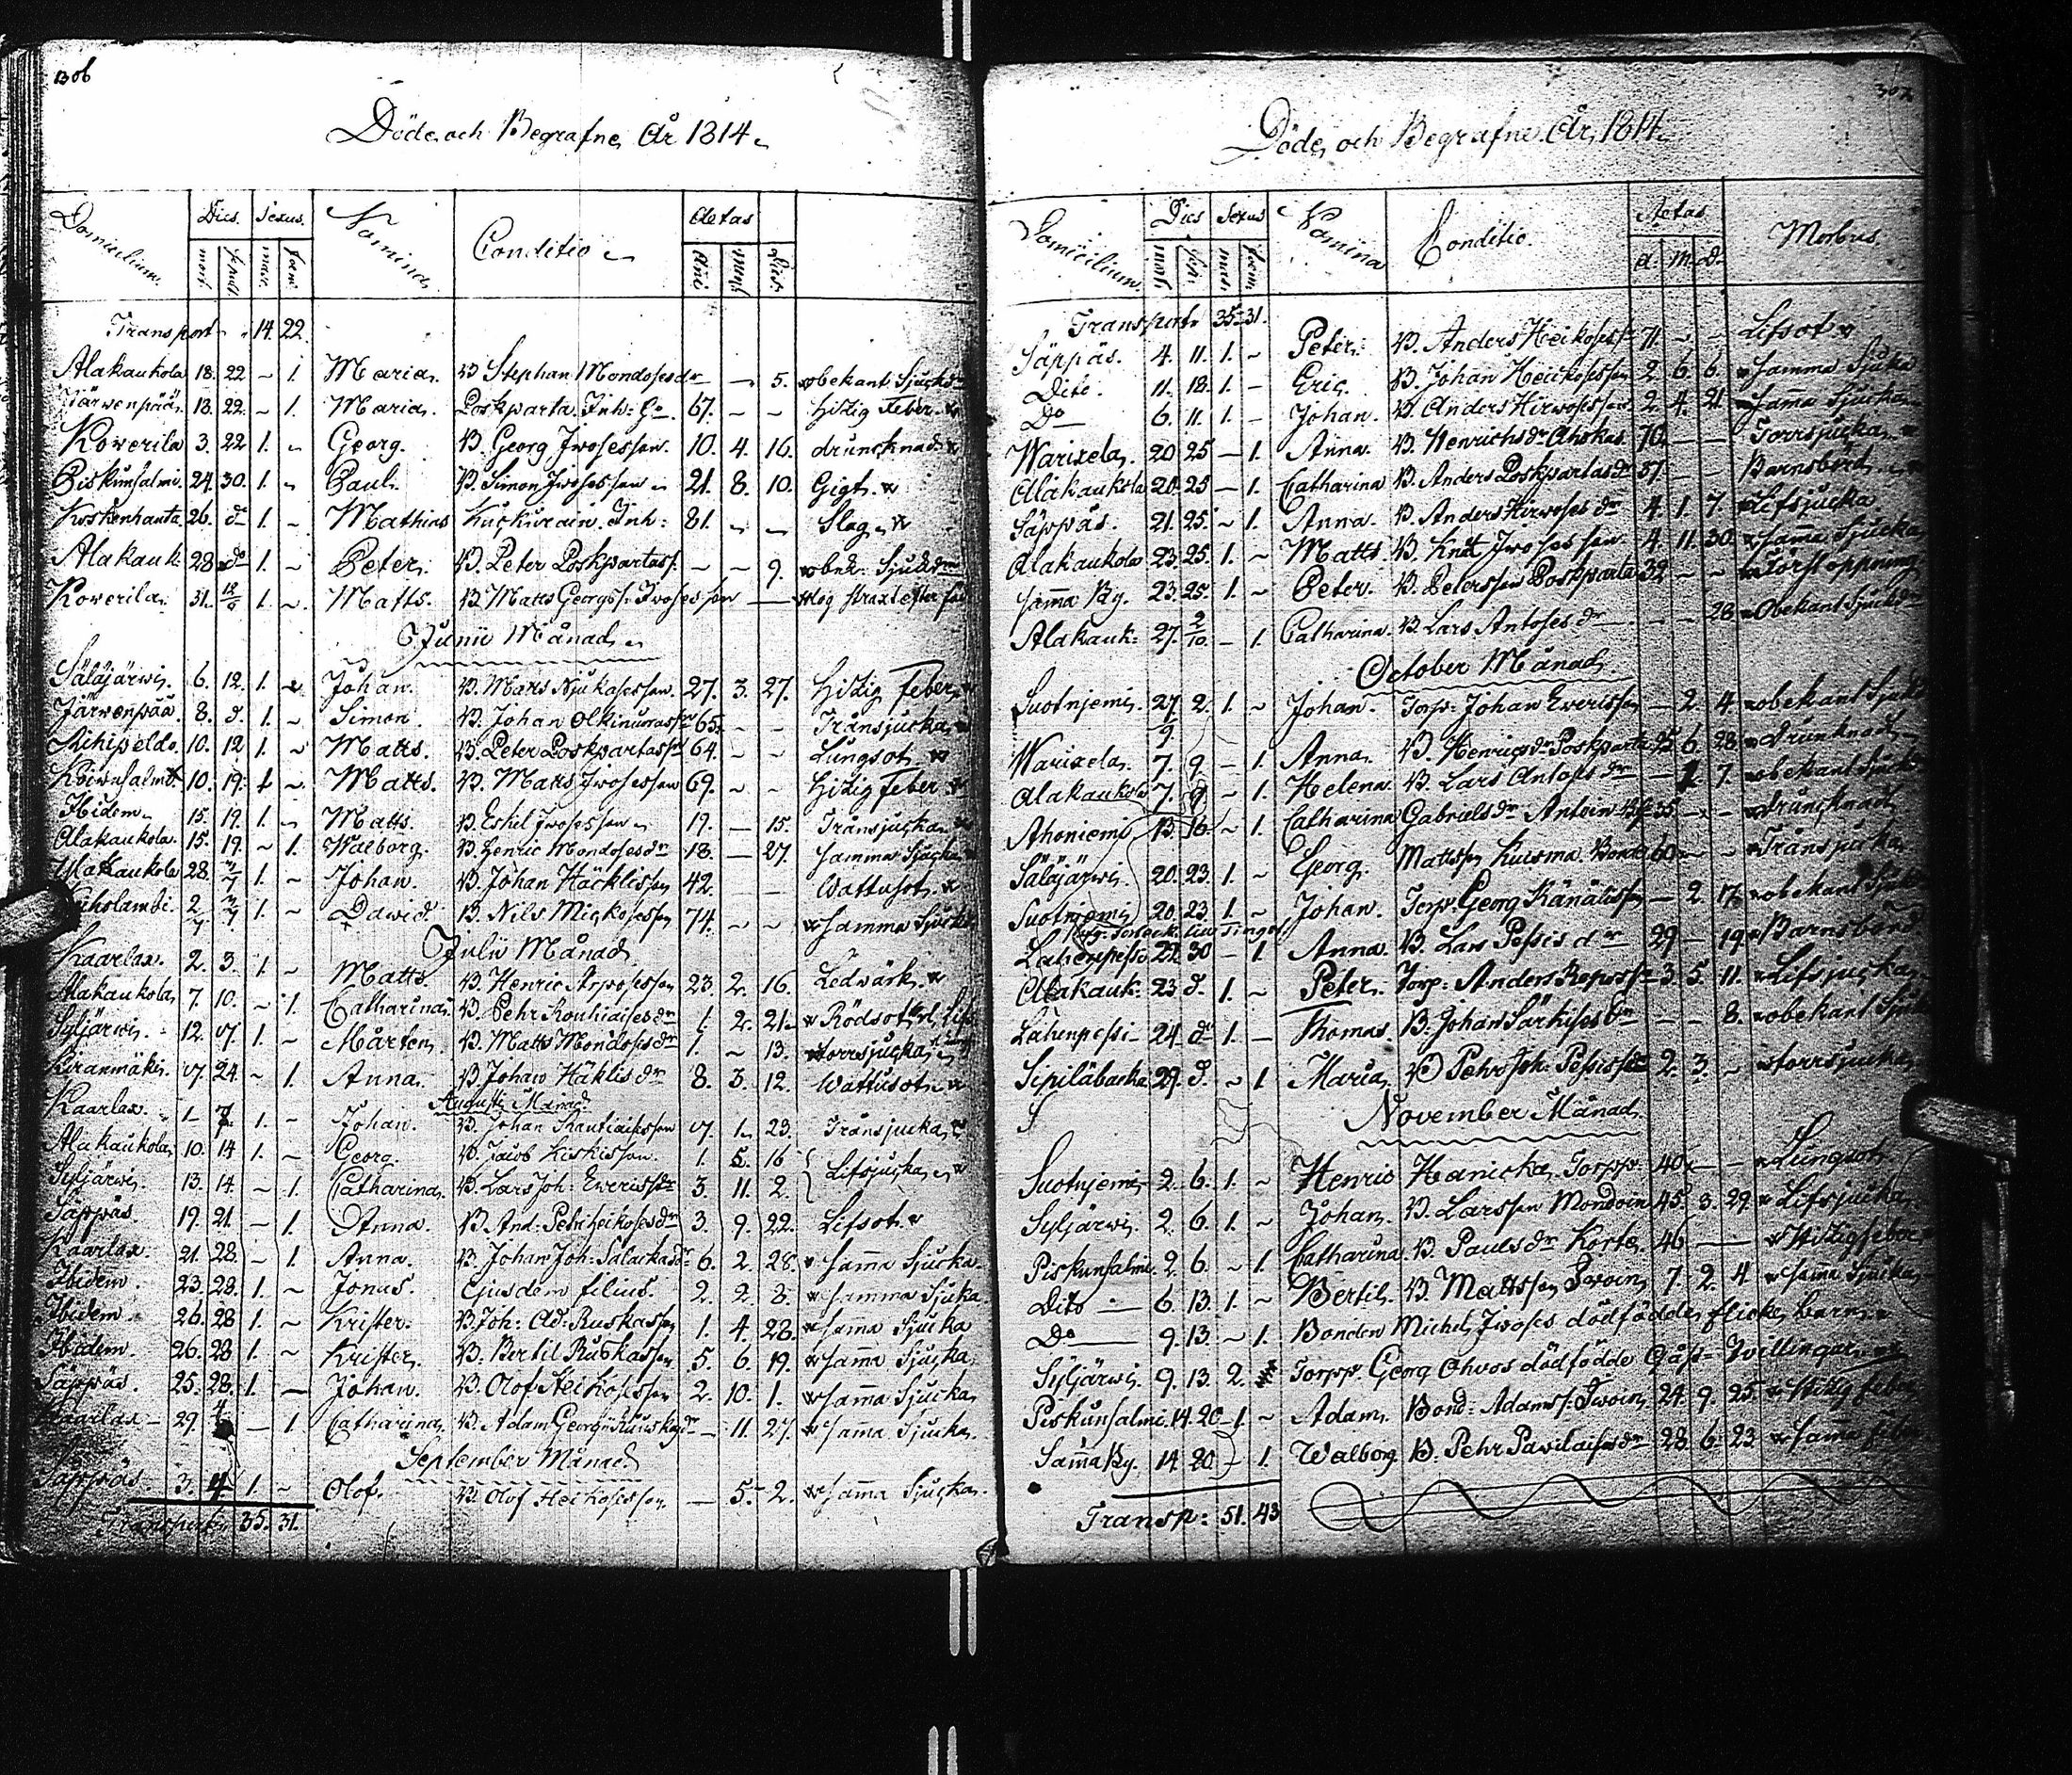 306
Döde och Begrafne År 1814
Domicilium. Dies. Sexus. Nomina Conditio Aetas
mort. sepult. masc. fœm. Ani Dies.
Transport 14 22
Alakaukola 18. 22 ~ 1. Maria. B. Stephan Mondosesdr — 5. obekant Sjuckd
Järwenpää 18. 22. ~ 1. Maria. Poskparta Inh: 67. ~ ~ Hitzig Feber
Koverila 3. 22 1. ~ Georg. B. Georg Iwosesson. 10. 4. 16. druncknad
Piskunsalmi 24. 30. 1. ~ Paul. B. Simon Iwosesson 21. 8. 10. Gigt.
Koskenhauta 26. do 1. ~ Mathias Kuckurain Inh: 81. ~ ~ Slag
Alakauk: 28 do 1. ~ Peter. B. Peter Poskpartass. ~ ~ 9. obek: Sjukdm
Koverila. 31. 12/6 1. ~ Matts. B. Matts Georgss. Iwosesson — dog straxt efter
Junii Månad
Säläjärwi. 6. 12. 1. ~ Johan. B. Mats Njukasesson. 27. 3. 27. Hitzig Feber
Järwenpää. 8. d. 1. ~ Simon. B. Johan Olkinuorass 65. ~ ~ Trånsjucka
10. 12 1. ~ Matts. B. Peter Poskpartass 64. ~ ~ Lungsot.
10. 19. 1 ~ Matts. B. Matts Iwosesson 69. ~ ~ Hitzig Feber
Ibidem 15. 19. 1. ~ Matts. B. Eskel Iwosesson 19. — 15. Trånsjucka
Alakaukola. 15. 19. ~ 1. Walborg. B. Henric Mondosesdr 18. — 27. Samma Sjucka
Alakaukola 28. 3/7 1. ~ Johan. B. Johan Häcklisson 42. — Wattusot.
2/7 3/7 1. ~ Dawid. B. Nils Mickosesson 74. ~ ~ Samma Sjucka
Julii Månad
Kaarlax. 2. 3. 1. ~ Matts. B. Henric Arwosesson 23. 2. 16. Ledwärk.
Alakaukola, 7. 10. ~ 1. Catharina. B. Pehr Rouhiaisesdr 1. 2. 21. Rödsot
Syljärwi. 12. 17. 1. ~ Mårten. B. Matts Mondosesdr 1. ~ 13. torrsjucka
Kiranmäki. 17. 24. ~ 1. Anna. B. Johan Häklisdr 8. 3. 12. Wattusot
Augusti Månad
Kaarlax. 1. 7. 1. ~ Johan. B. Johan 17. 1. 23. Trånsjucka
Alakaukola, 10. 14 1. ~ Georg. B. Jacob Kiskisson. 1. 5. 16 Lifsjucka
Syljärwi. 13. 14. ~ 1. Catharina. B. Lars Joh: Ewerissdr 3. 11. 2.
Säppäs. 19. 21. — 1. Anna. B. And: Petri Heikosesdr 3. 9. 22. Lifsot
Kaarlax. 21. 28. ~ 1. Anna. B. Johan Joh: Salackasdr 6. 2. 28. Samma Sjucka.
Ibidem. 23. 28. 1. ~ Jonas. Ejusdem filius. 2. 2. 8. Samma Sjuka
Ibidem. 26. 28 1. ~ Krister. B. Joh: Ad: Ruskasson 1. 4. 28. Sama Sjucka
Ibidem. 26. 28 1. ~ Krister. B. Bertil Ruskasson 5. 6. 19. Sama Sjucka
Säppäs. 25. 28. 1. — Johan. B. Olof Heikosesson 2. 10. 1. Sama Sjucka
Kaarlax — 29. 4 — 1. Catharina B. Adam Georg — 11. 27. Sama Sjucka.
September Månad
Säppäs. 3. 4. 1. ~ Olof. B. Olof Heikosesson — 5. 2. Sama Sjucka.
Transport 35. 31.
307
Döde och Begrafne År 1814
Domicilium. Dies Sexus Nomina Conditio. Aetas Morbus
mort. sep. mas. fœm. a. M. D.
Transport 35 31.
Säppäs. 4. 11. 1. ~ Peter. B. Anders Heikosess 71. ~ ~ Lifsot
Dito. 11. 18. 1. ~ Eric. B. Johan Heikosesson 2. 6. 6. Samma Sjuka
Do 6. 11. 1. ~ Johan. B. Anders Hirwosesson 2. 4. 21. Sama Sjucka
Warixela. 20 25 — 1. Anna. B. Henrichsdr Ahokas 70. — Torrsjucka
Alakaukola 20. 25 — 1. Catharina B. Anders Poskpartasdr 37. — Barnsbörd
Säppäs. 21. 25. ~ 1. Anna. B. Anders Hirwosesdr 4. 1. 7. Lifsjucka
Alakaukola 23. 25. 1. ~ Matts. B. Knut Iwosesson 4. 11. 30. Sama Sjucka
Sama By. 23. 25. 1. ~ Peter. B. Petersson Poskparta 32 ~ ~ Förstoppning
Alakauk: 27. 2/10 — 1. Catharina. B. Lars Antosesdr — 28. Obekant Sjuckdm
October Månad
Suotnjemi. 27/9 2. 1. ~ Johan. Torp: Johan Ewerisson — 2. 4. obekant Sjuckd
Warixela. 7. 9. — 1. Anna. B. Henricsdr Poskparta 25 6 28. Drunknad
Alakaukola 7. 9 ~ 1. Helena B. Lars Antosesdr — 7. obekant Sjuckd
Ahoniemi 13. 16. ~ 1. Catharina Gabrielsdr Antoin 35 — Druncknad
Säläjärwi. 20. 23. 1. ~ Georg. Mattsson Kuisma Bond 60 ~ ~ Trånsjucka
Suotnjemi 20. 23. 1. ~ Johan. Torp: Georg Känäläss — 2. 17. obekant Sjuck
Lahenpessi 22. 30 — 1 Anna. B. Lars Pessisdr 29 — 19. Barnsbörd
Alakauk: 23. d. 1. ~ Peter. Torp: Anders Reposs 3. 5. 11. Lifsjucka
Lahenpessi 24 do 1. — Thomas. B. Johan Särkisson — 8. obekant Sjuk
Sipiläbacka 29. d. ~ 1 Maria. B. Pehr Joh: Pessissdr 2. 3. ~ torrsjucka
November Månad
Suotnjemi 2. 6. 1. ~ Henric Hanicka Torpp. 40. — Lungsot
Syljärwi. 2. 6. 1. ~ Johan. B. Larsson Mondoin 45. 3. 29. Lifsjucka
Piskunsalmi. 2. 6. ~ 1 Catharina B. Paulsdr Korte 46 — Hitzigfeber
Dito — 6. 13. 1. ~ Bertil. B. Mattsson Iwoin 7. 2. 4. Sama Sjucka
Do — 9. 13. ~ 1. Bonden Michel Iwoses dödfödde flicke barn
Syljärwi. 9. 13. 2. Torpp. Georg Ohvos dödfödde Gåss- Twillingar
Piskunsalmi. 14. 20 1. ~ Adam. Bond: Adamss: Iwoin 24. 9. 25. Hitzig feber
Sama By. 14 20 1. Walborg B. Pehr Pavilaisesdr 28. 6. 23. Sama
Transp: 51. 43